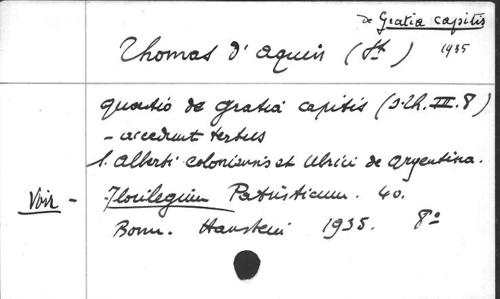 de Gratia capitis
Thomas d'aquin (St) 1935
quaestio de gratia capitis (S.Th. III. 8)
- accedunt textus
S. Alberti coloniensis et Ulrici de argentina.
Voir - Florilegium Patristicum. 40.
Bonn. Hanstein 1935. 8°